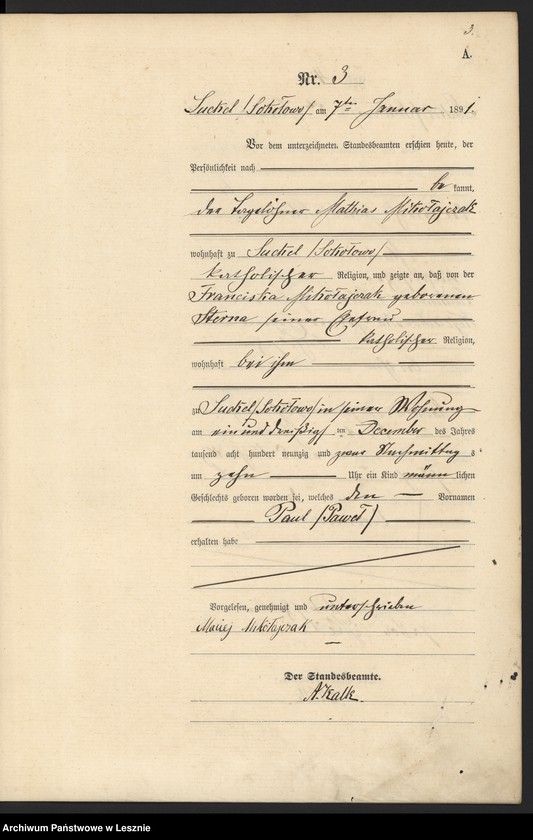 3.
A.
Nr. 3
Suckel (Sokołowo) am 7ten Januar 1891.
Vor dem unterzeichneten Standesbeamten erschien heute, der
Persönlichkeit nach
be kannt,
der Tagelöhner Mathias Mikołajczak
wohnhaft zu Suckel (Sokołowo)
katholischer Religion, und zeigte an, daß von der
Franciska Mikołajczak geborenen
Sterna seiner Ehefrau
katholischer Religion,
wohnhaft bei ihm
zu Suckel (Sokołowo) in seiner Wohnung
am ein und dreißigsten December des Jahres
tausend acht hundert neunzig und zwar Nachmittag s
um zehn Uhr ein Kind männ lichen
Geschlechts geboren worden sei, welches den Vornamen
Paul (Paweł)
erhalten habe
Vorgelesen, genehmigt und unterschrieben
Maciej Mikołajczak
Der Standesbeamte.
A. Kalk
Archiwum Państwowe w Lesznie